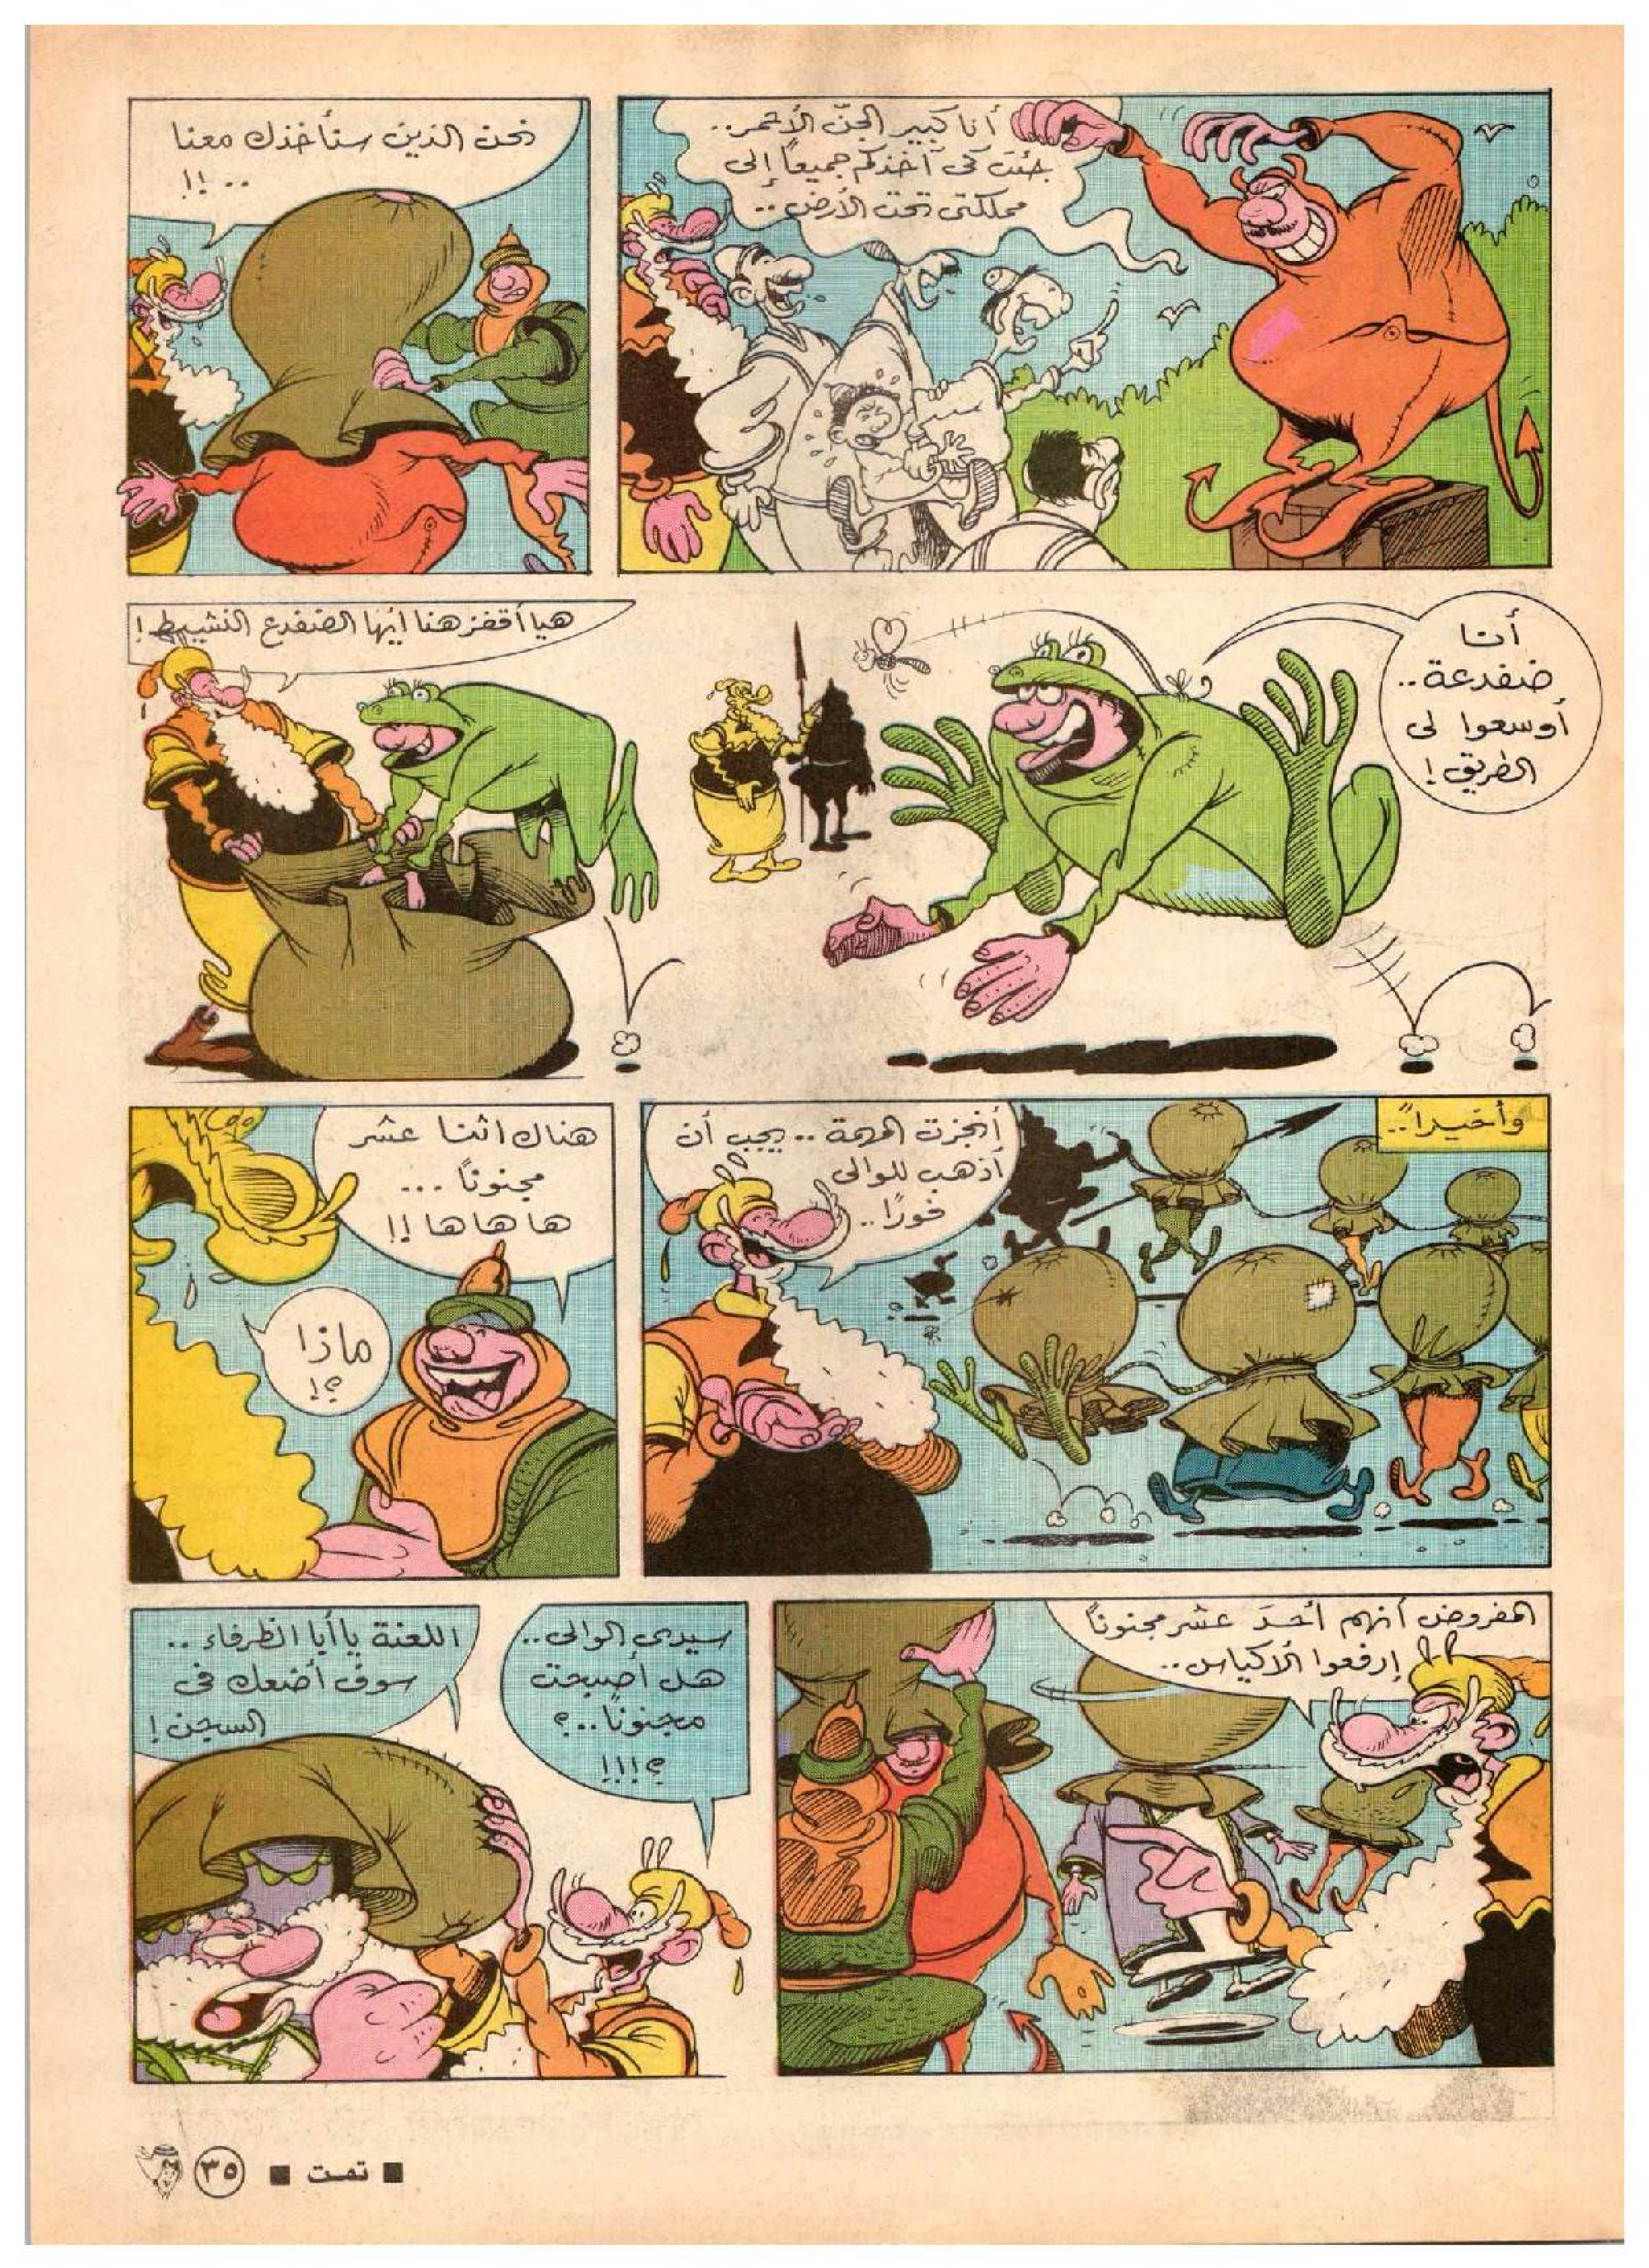 أنا كبير الجنّ الأحمر..
جئت كى آخذكم جميعاً إلى
مملكتى تحت الأرض..
نحن الذين سنأخذك معنا
..!!
أنا
ضفدعة..
أوسعوا لى
الطريق!
هيا أقفز هنا أيها الضفدع النشيط!
وأخيراً..
أنجزت المهمة.. يجب أن
أذهب للوالى
فورًا..
هناك اثنا عشر
مجنونًا...
ها ها ها!!
ماذا
؟!
المفروض أنهم أحدَ عشر مجنونًا
إرفعوا الأكياس..
سيدى الوالى..
هل أصبحت
مجنونًا..؟
؟!!!
اللعنة يا أبا الظرفاء..
سوف أضعك فى
السجن!
■ تمت ■ ٣٥